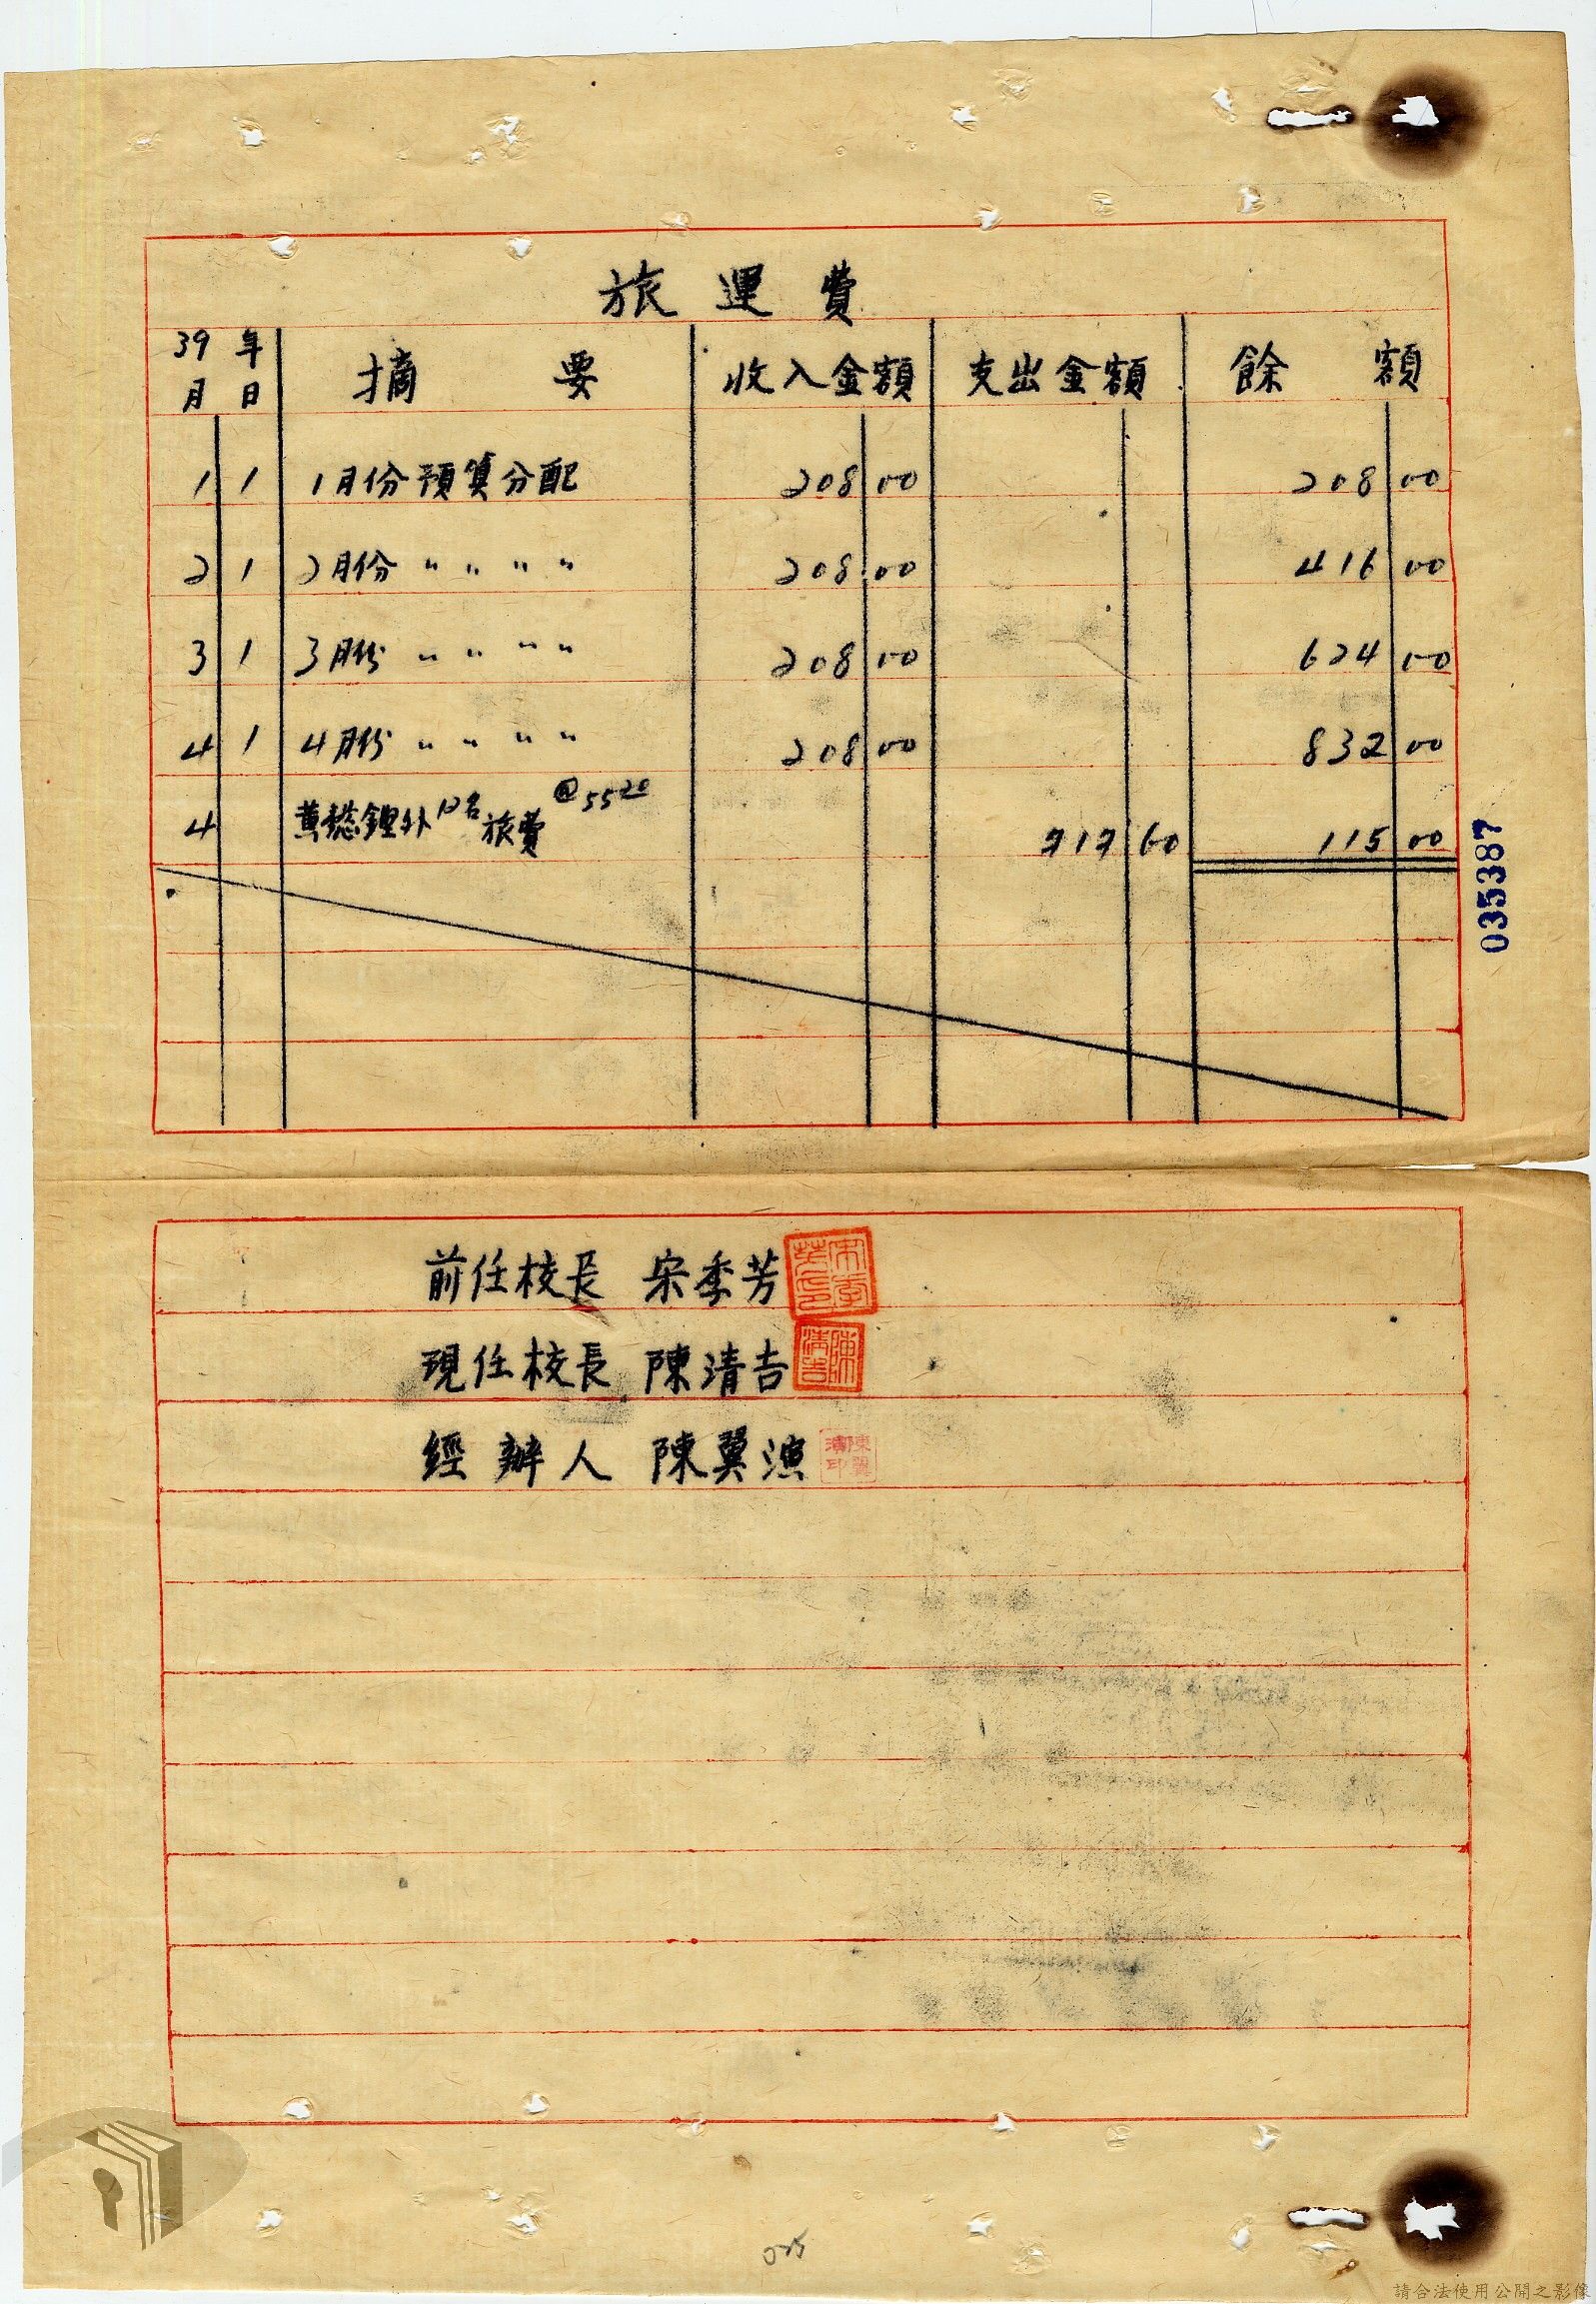 旅運費
39年
月 日 摘要 收入金額 支出金額 餘額
1 1 1月份預算分配 208 00 208 00
2 1 2月份 〃 〃 〃 〃 208 00 416 00
3 1 3月份 〃 〃 〃 〃 208 00 624 00
4 1 4月份 〃 〃 〃 〃 208 00 832 00
4 黃懿鍾外12名旅費 @55 20 717 60 115 00
035387
前任校長 宋季芳 宋季芳印
現任校長 陳清吉 陳清吉
經辦人 陳翼演 陳翼演印
025
請合法使用公開之影像